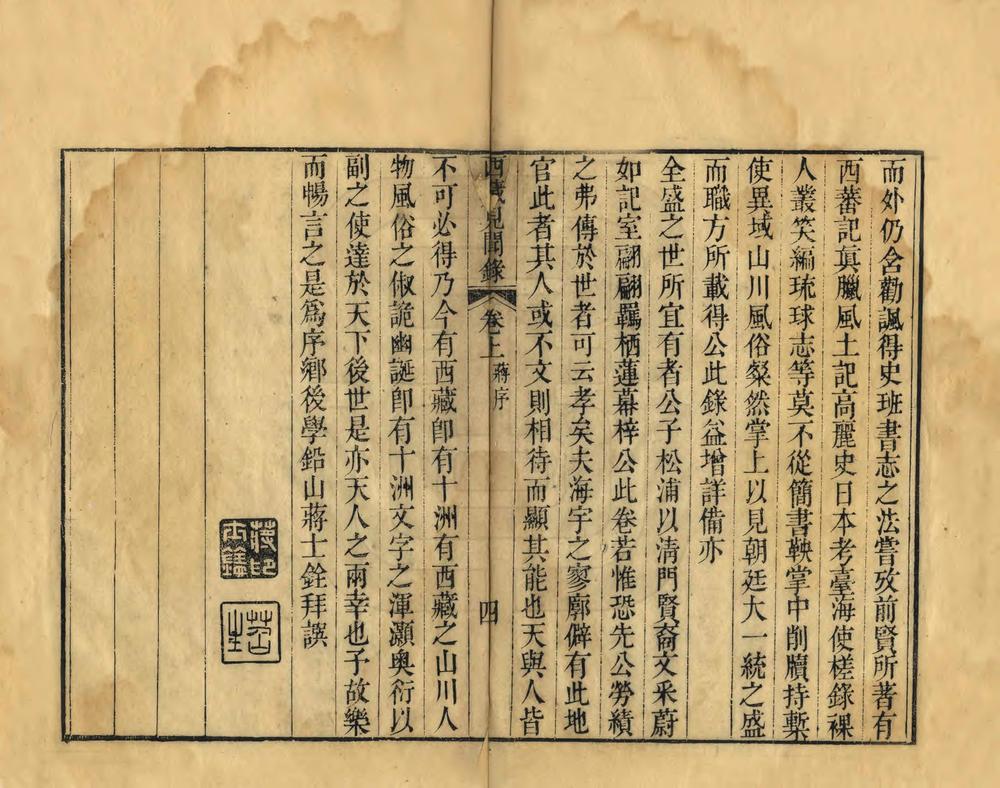 而外仍含勸諷得史班書志之法嘗攷前賢所著有
西蕃記眞臘風土記高麗史日本考臺海使槎錄裸
人叢笑編琉球志等莫不從簡書鞅掌中削牘持槧
使異域山川風俗粲然掌上以見朝廷大一統之盛
而職方所載得公此錄益增詳備亦
全盛之世所宜有者公子松浦以淸門賢裔文采蔚
如記室翩翩羈栖蓮幕梓公此卷若惟恐先公勞績
之弗傳於世者可云孝矣夫海宇之寥廓僻有此地
官此者其人或不文則相待而顯其能也天與人皆
西藏見聞錄 卷上 蔣序 四
不可必得乃今有西藏卽有十洲有西藏之山川人
物風俗之俶詭幽誕卽有十洲文字之渾灝奥衍以
副之使達於天下後世是亦天人之兩幸也予故樂
而暢言之是爲序鄉後學鉛山蔣士銓拜譔
蔣印士銓
苕生